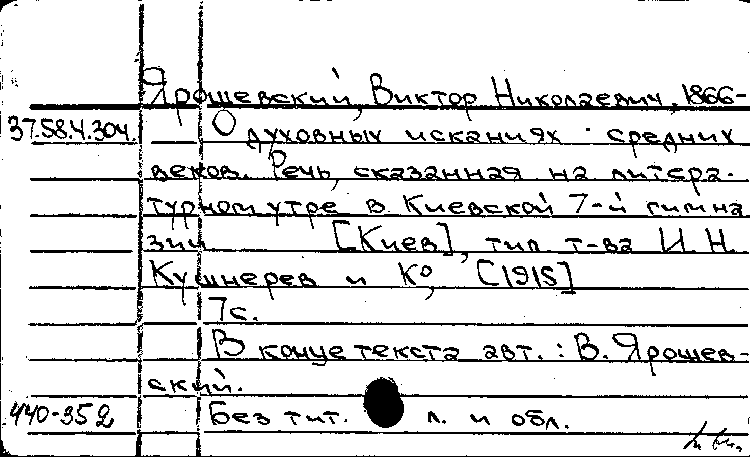 Ярошевский, Виктор Николаевич, 1866-
37.58.4.304. О духовных исканиях средних
веков. Речь, сказанная на литера-
турном утре в Киевской 7-й гимна
зии [Киев], тип. т-ва И. Н.
Кушнерев и К°, [1915]
7с.
В конце текста авт.: В. Ярошев-
ский.
440-352 Без тит. л. и обл.